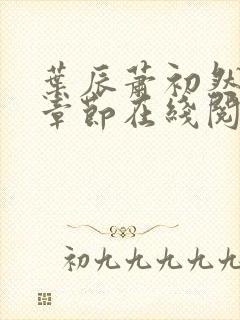 葉辰蕭初然
章節在綫閱
初九九九九九